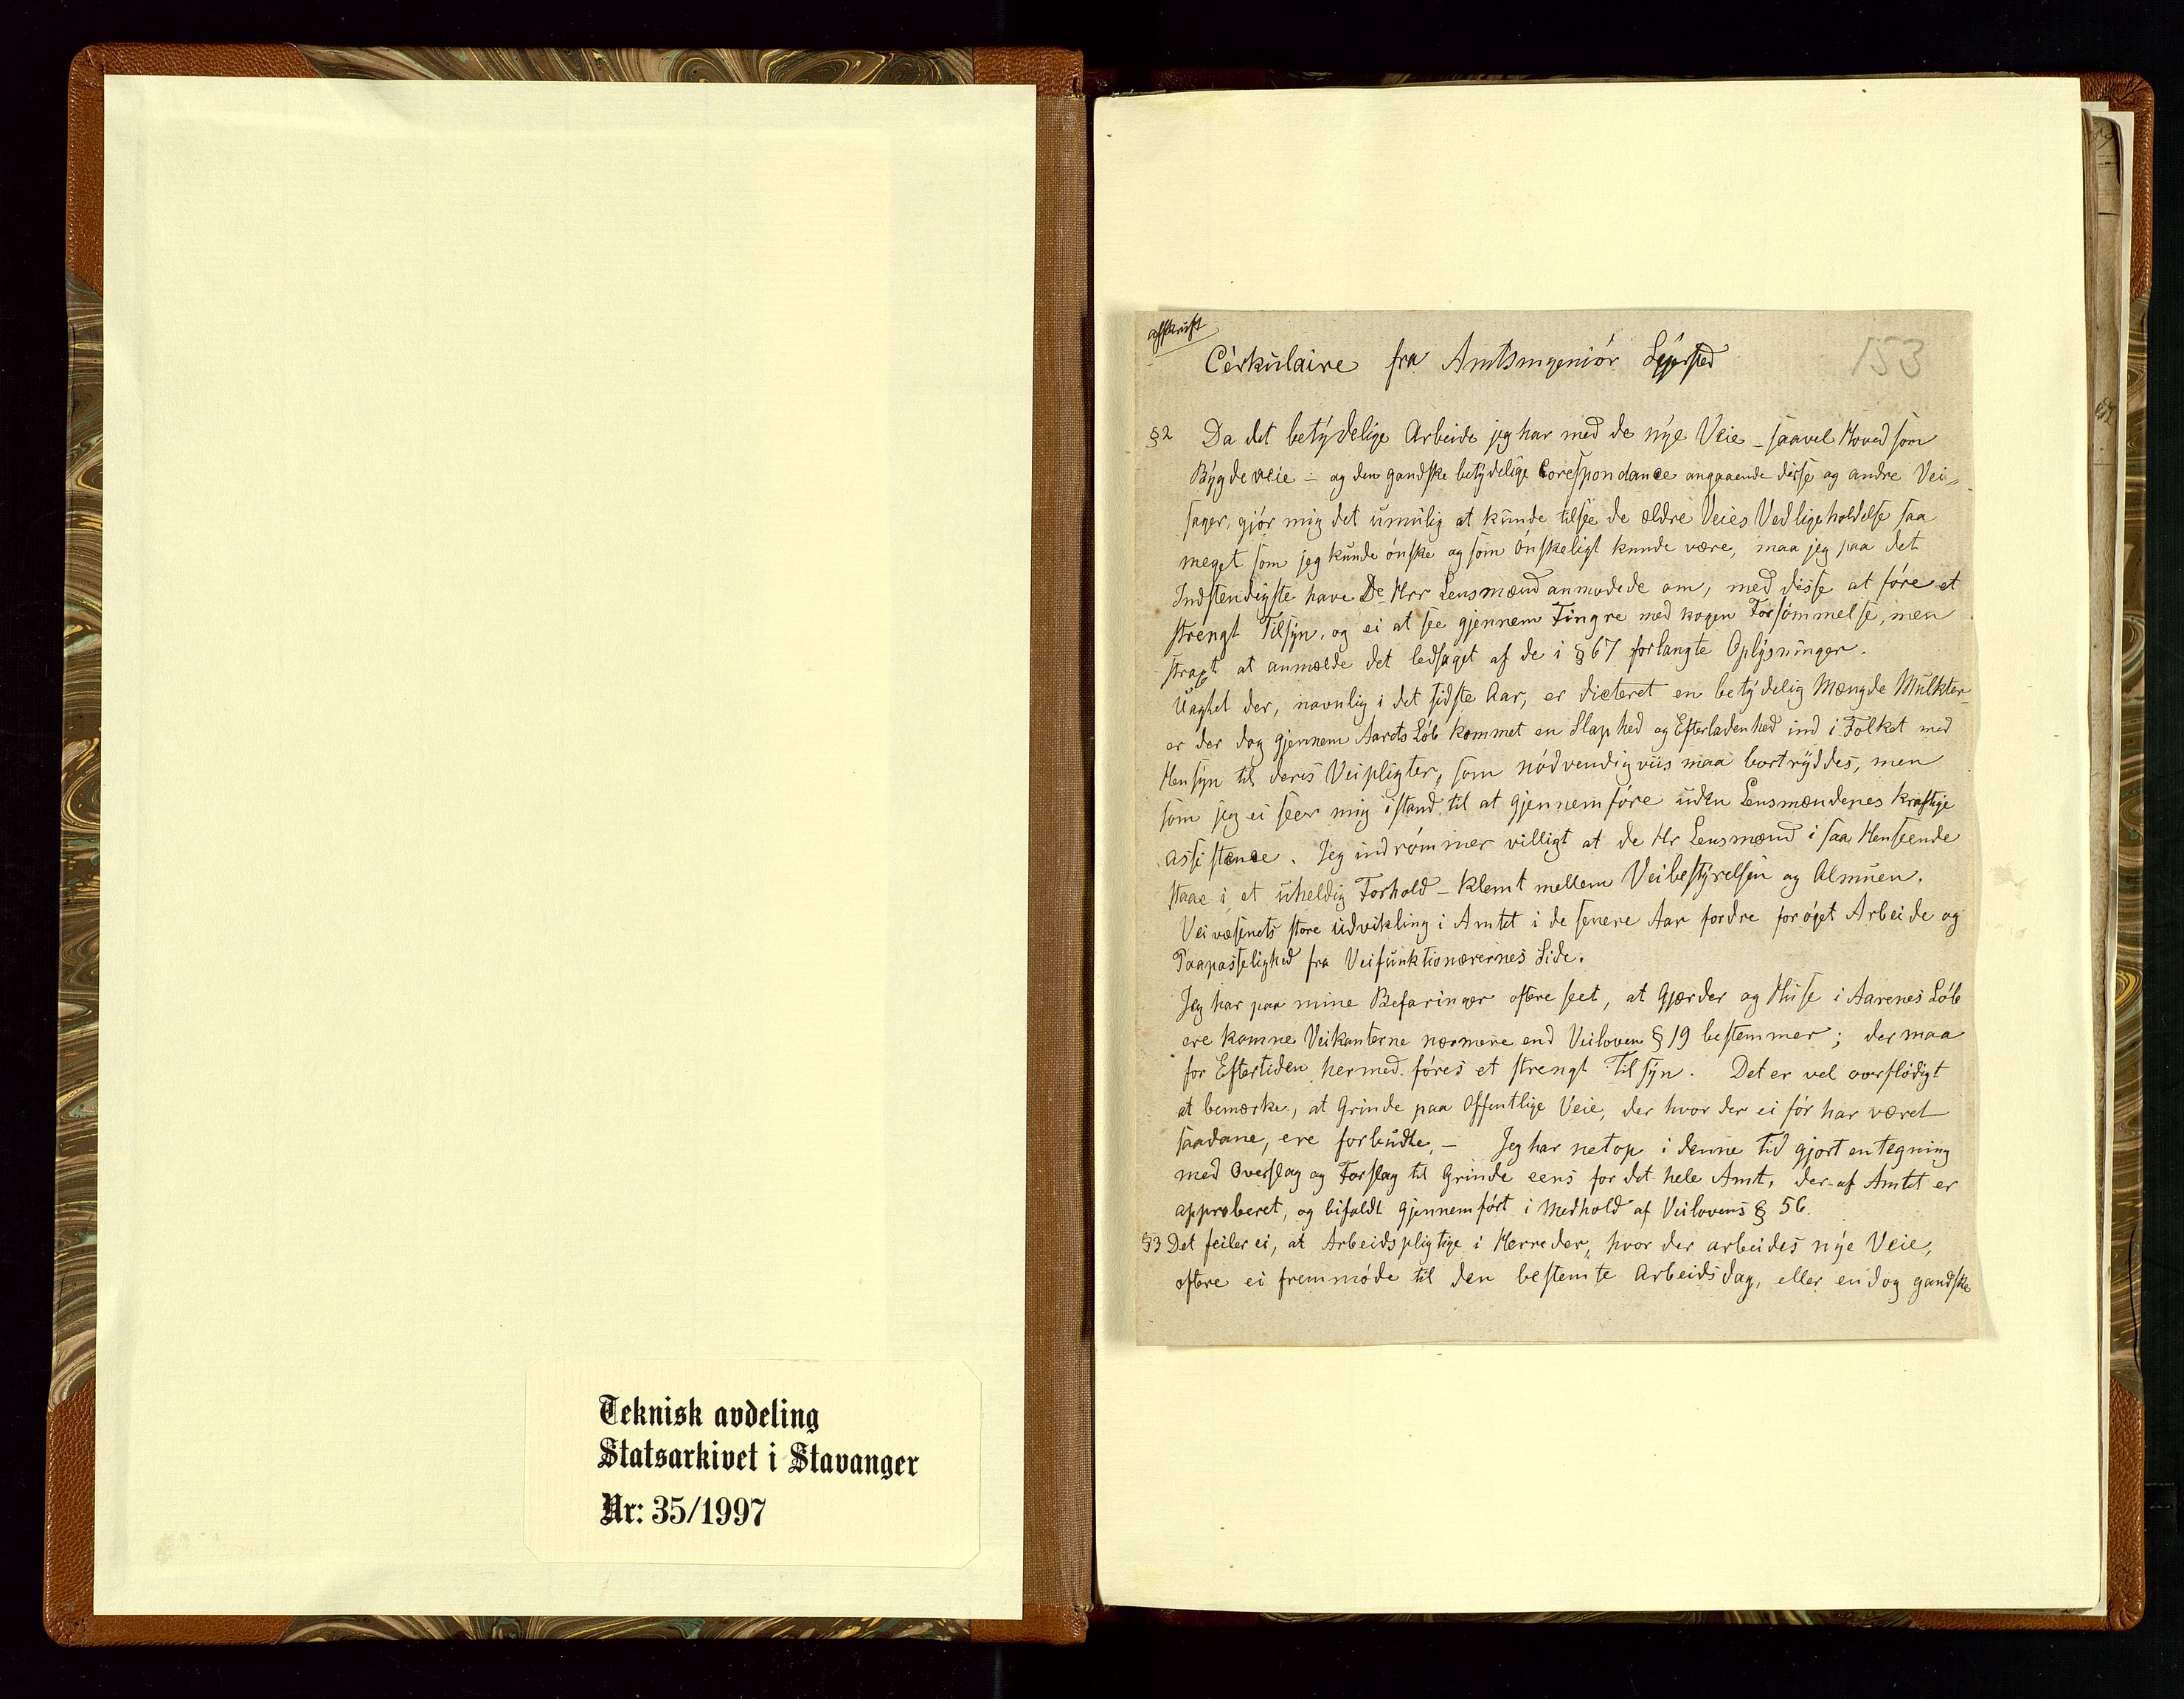 Teknisk avdeling
Statsarkivet i Stavanger
Nr: 35/1997
afskrift
Cirkulaire fra Amtsingeniör
153
§2 Da det betydelige Arbeide jeg har med de nye Veie - saavel Hoved som
Bygdeveie - og den gandske betydelige Corespondance angaaende disse og andre Vei-
sager, gjör mig det umulig at kunde tilsee de ældre Veies Vedligeholdelse saa
meget som jeg kunde önske og som Önskeligt kunde være, maa jeg paa det
Indstendigste have De Hrr Lensmænd anmodede om, med disse at före et
strengt Tilsyn, og ei at see gjennem Fingre med nogen Forsömmelse, men
strax at anmælde det ledsaget af de i § 67 forlangte Oplysninger.
Uagtet der, navnlig i det sidste Aar, er dicteret en betydelig Mængde Mulkter
er der dog gjennem Aarets Löb kommet en Slaphed og Efterladenhed ind i Folket med
Hensyn til deres Veipligter, som nödvendigviis maa bortryddes, men
som jeg ei seer mig istand til at gjennemföre uden Lensmændenes kraftige
assistance. Jeg indrömmer villigt at de Hr Lensmænd i saa Henseende
staae i et uheldig Forhold - klemt mellem Veibestyrelsen og Almuen.
Veivæsenets store udvikling i Amtet i de senere Aar fordre foröget Arbeide og
Paapasselighed fra Veifunktionærernes Side.
Jeg har paa mine Befaringer oftere seet, at Gjærder og Huse i Aarenes Löb
ere komne Veikanterne nærmere end Veiloven § 19 bestemmer; der maa
for Eftertiden hermed föres et strengt Tilsyn. Det er vel overflödigt
at bemærke, at Grinde paa Offentlige Veie, der hvor der ei för har været
saadane, ere forbudte. - Jeg har netop i denne tid gjort en tegning
med Overslag og Forslag til Grinde eens for det hele Amt, der af Amtet er
approberet, og bifaldt gjennemfört i Medhold af Veilovens § 56.
§3 Det feiler ei, at Arbeidspligtige i Herreder, hvor der arbeides nye Veie,
oftere ei fremmöde til den bestemte Arbeidsdag, eller endog gandske